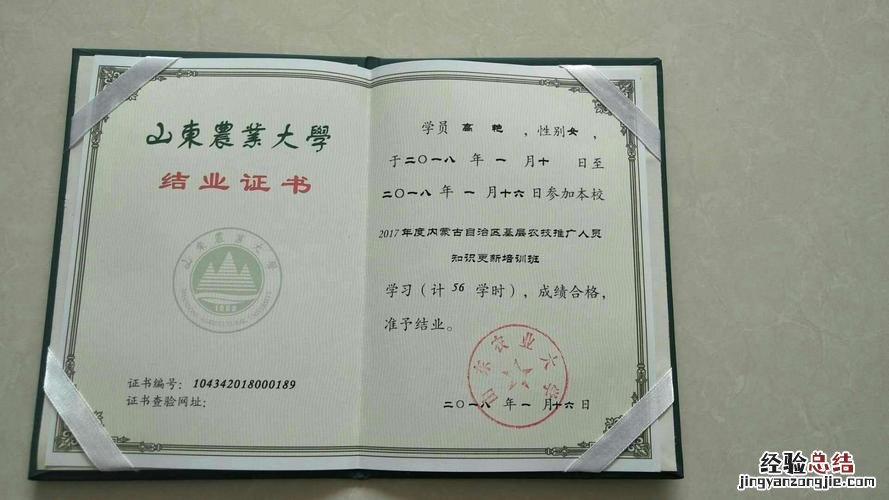 山東農業大學
结业证书
山東農業大學
1906
SHANDONG AGRICULTURAL UNIVERSITY
证书编号：104342018000189
证书查验网址：
学员 高艳 ，性别女，
于二〇一八 年 一 月十 日至
二〇一八 年 一 月十六日参加本校
2017年度内蒙古自治区基层农技推广人员
知识更新培训班
学习（计 56 学时），成绩合格，
准予结业。
山东农业大学
二〇一八 年 一 月十六日
经验总结
jingyanzongjie.com